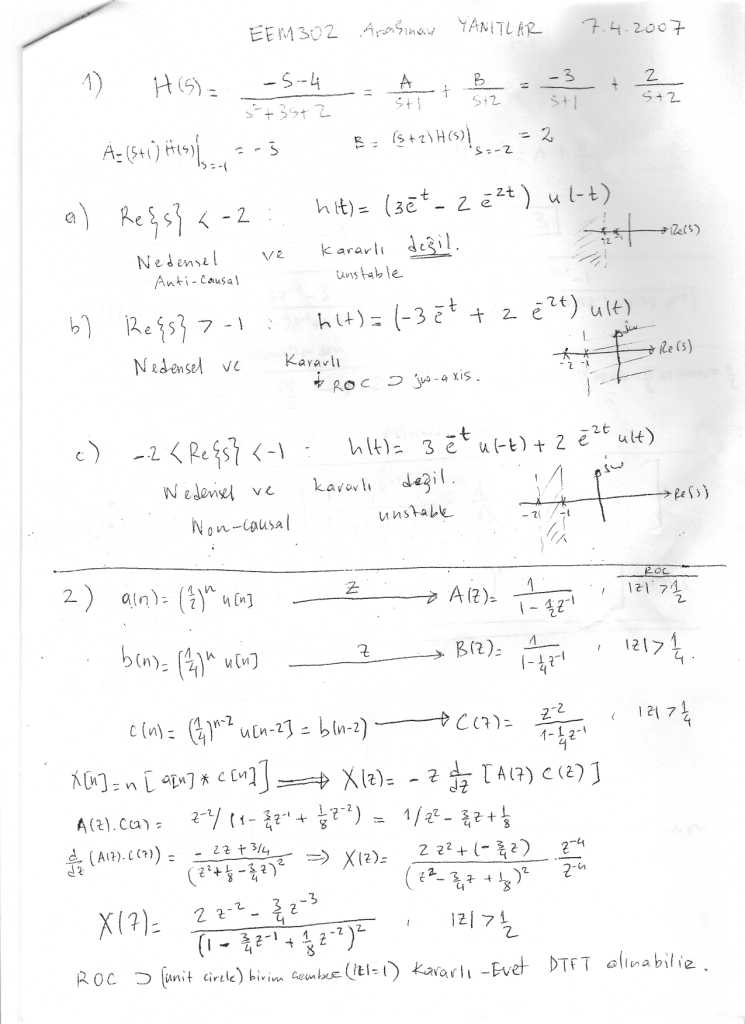 EEM302 Arasınav YANITLAR 7.4.2007
1) H(s) = (-s-4)/(s²+3s+2) = A/(s+1) + B/(s+2) = -3/(s+1) + 2/(s+2)
A = (s+1)H(s)|s=-1 = -3 B = (s+2)H(s)|s=-2 = 2
a) Re{s} < -2 : h(t) = (3e^-t - 2e^-2t) u(-t)
-2 -1 Re(s)
Nedensel ve kararlı değil.
Anti-Causal unstable
b) Re{s} > -1 : h(t) = (-3e^-t + 2e^-2t) u(t)
jω
-2 -1 Re(s)
Nedensel ve Kararlı
↓ ROC ⊃ jω-axis.
c) -2 < Re{s} < -1 : h(t) = 3e^-t u(-t) + 2e^-2t u(t)
jω
-2 -1 Re(s)
Nedensel ve kararlı değil.
Non-causal unstable
ROC
2) a(n) = (1/2)^n u[n] Z → A(z) = 1/(1 - 1/2 z^-1) , |z| > 1/2
b(n) = (1/4)^n u[n] Z → B(z) = 1/(1 - 1/4 z^-1) , |z| > 1/4.
c(n) = (1/4)^n-2 u[n-2] = b(n-2) → C(z) = z^-2/(1 - 1/4 z^-1) , |z| > 1/4
X[n] = n [a[n] * c[n]] ⟹ X(z) = -z d/dz [A(z) C(z)]
A(z).C(z) = z^-2/(1 - 3/4 z^-1 + 1/8 z^-2) = 1/z² - 3/4 z + 1/8
d/dz (A(z).C(z)) = (-2z + 3/4)/(z² + 1/8 - 3/4 z)² ⇒ X(z) = (2z² + (-3/4 z))/(z² - 3/4 z + 1/8)² z^-4/z^-4
X(z) = (2z^-2 - 3/4 z^-3)/(1 - 3/4 z^-1 + 1/8 z^-2)² , |z| > 1/2
ROC ⊃ (unit circle) birim çember (|z|=1) Kararlı - Evet DTFT alınabilir.